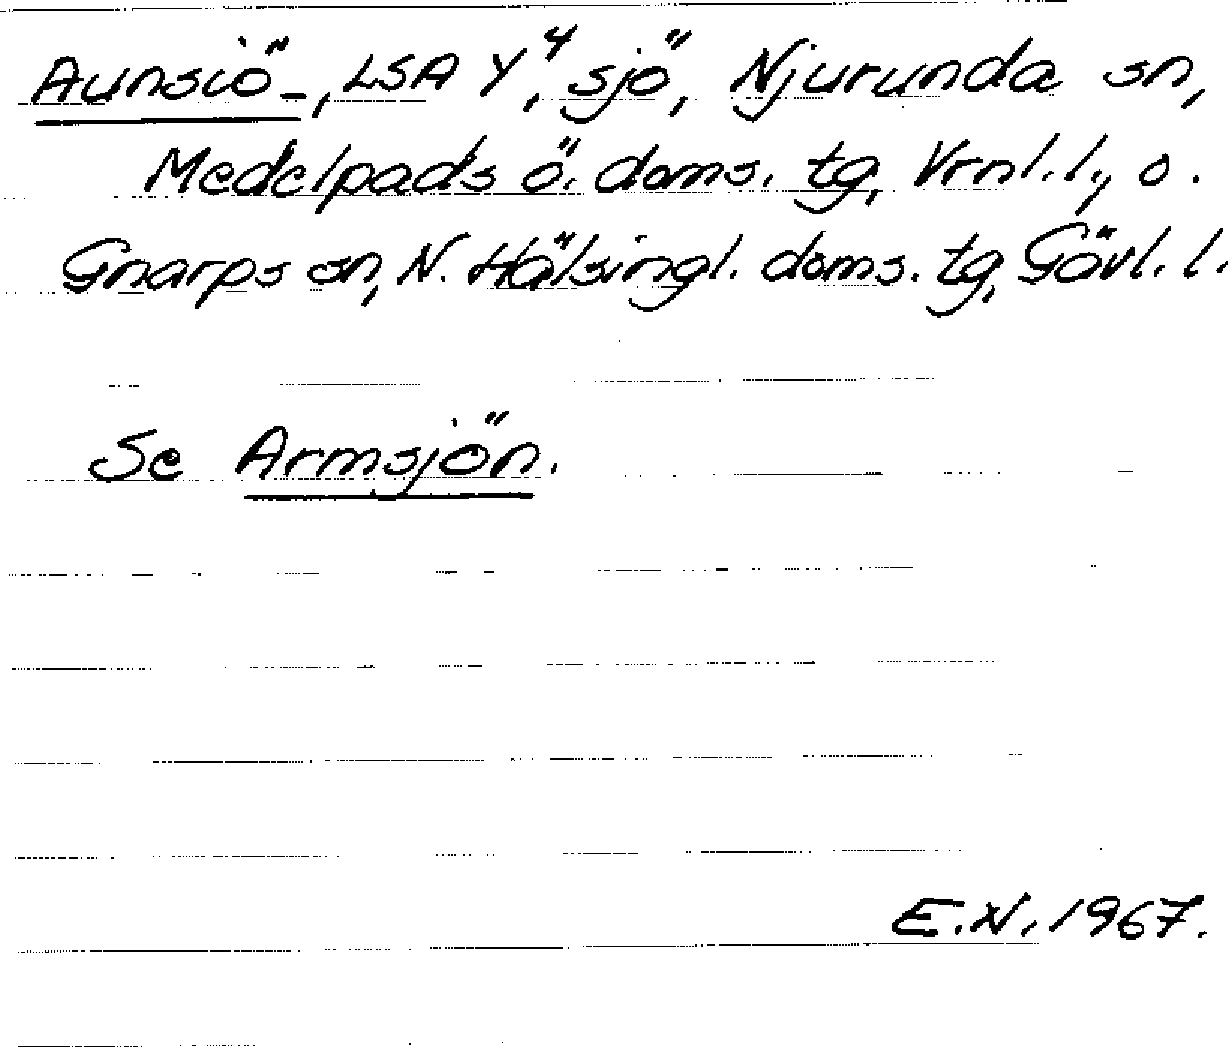 Aunsiö-, LSA Y⁴, sjö, Njurunda sn,
Medelpads ö. doms. tg, Vrnl. l., o.
Gnarps sn, N. Hälsingl. doms. tg, Gävl. l.
Se Armsjön.
E.N. 1967.